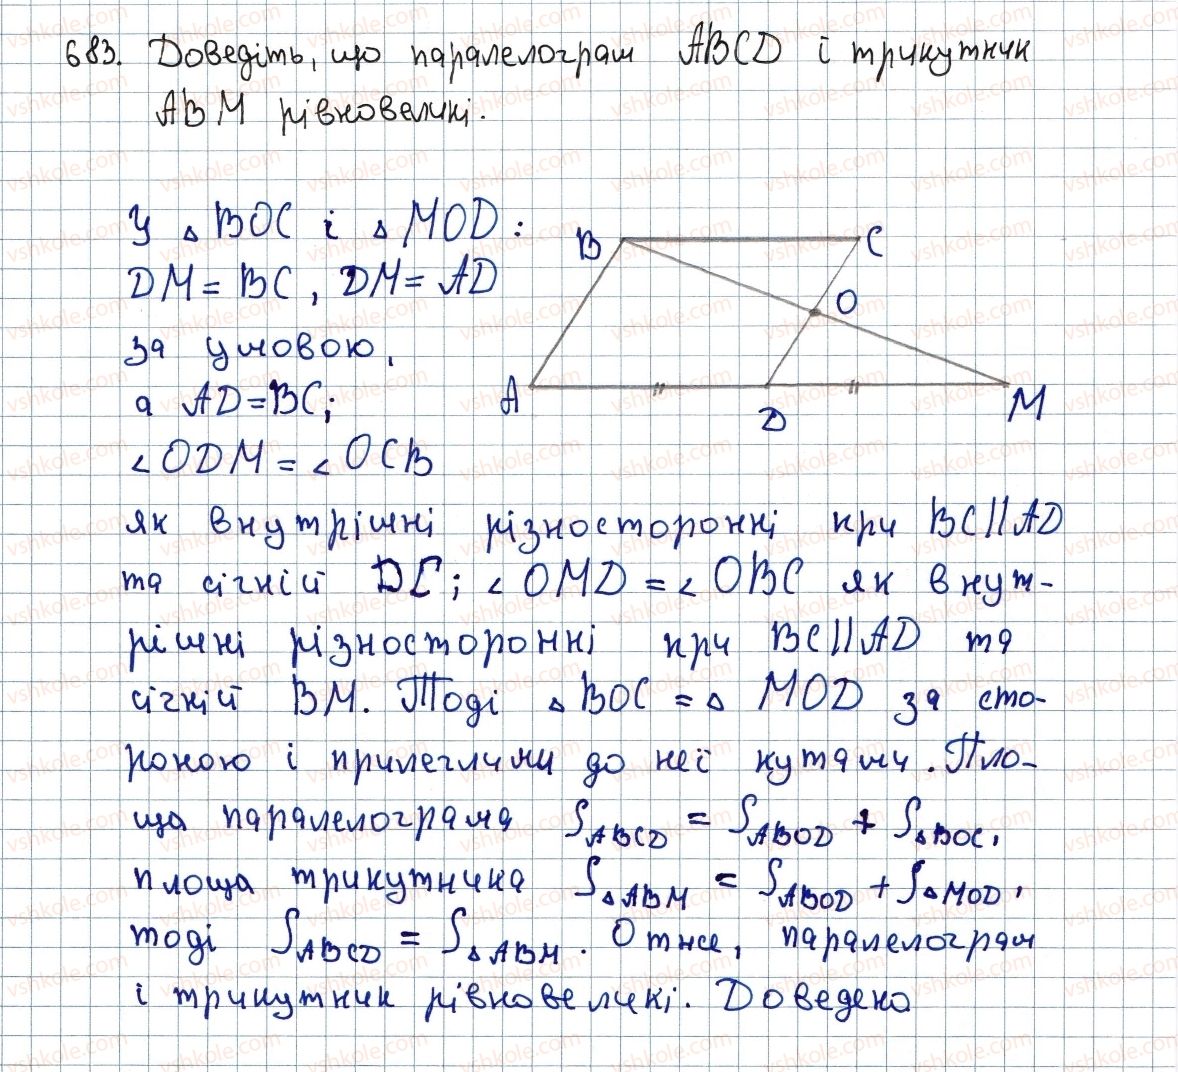 683. Доведіть, що паралелограм ABCD і трикутник
ABM рівновеликі.
У △BOC і △MOD:
DM = BC, DM = AD
за умовою,
а AD = BC;
∠ODM = ∠OCB
B
C
O
A
D
M
як внутрішні різносторонні при BC || AD
та січній DC; ∠OMD = ∠OBC як внут-
рішні різносторонні при BC || AD та
січній BM. Тоді △BOC = △MOD за сто-
роною і прилеглими до неї кутами. Пло-
ща паралелограма S_ABCD = S_ABOD + S_△BOC,
площа трикутника S_△ABM = S_ABOD + S_△MOD,
тоді S_ABCD = S_△ABM. Отже, паралелограм
і трикутник рівновеликі. Доведено
vshkole.com